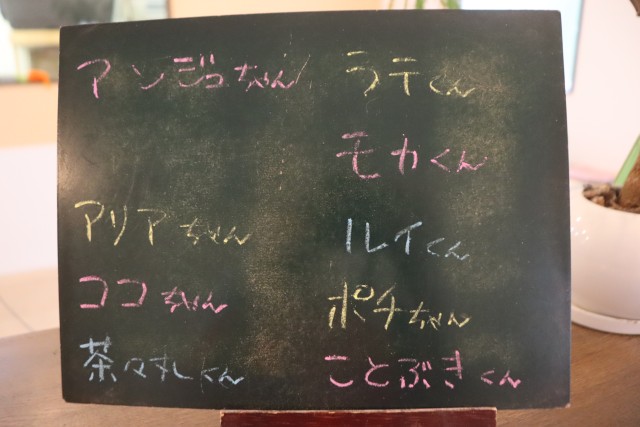 アンジュちゃん
アリアちゃん
ココちゃん
茶々丸くん
ラテくん
モカくん
ルイくん
ポチちゃん
ことぶきくん